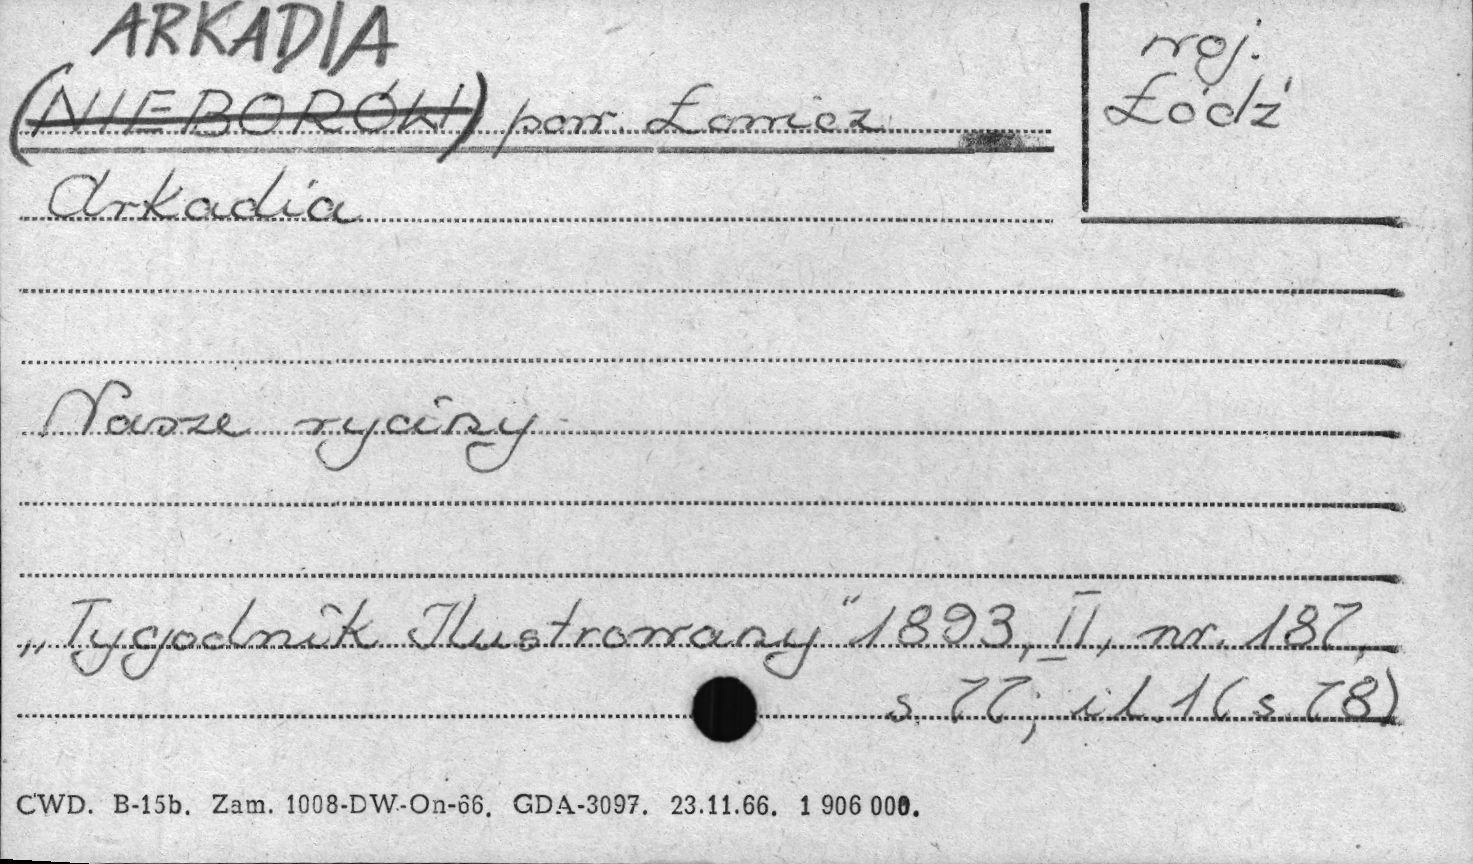 ARKADIA
(NIEBORÓW) pow. Łowicz
woj.
Łódź
Arkadia
Nasze ryciny
„Tygodnik Ilustrowany" 1893, II, nr. 187,
s. 77; il. 1 (s. 78)
CWD. B-15b. Zam. 1008-DW.-On-66. GDA-3097. 23.11.66. 1 906 000.